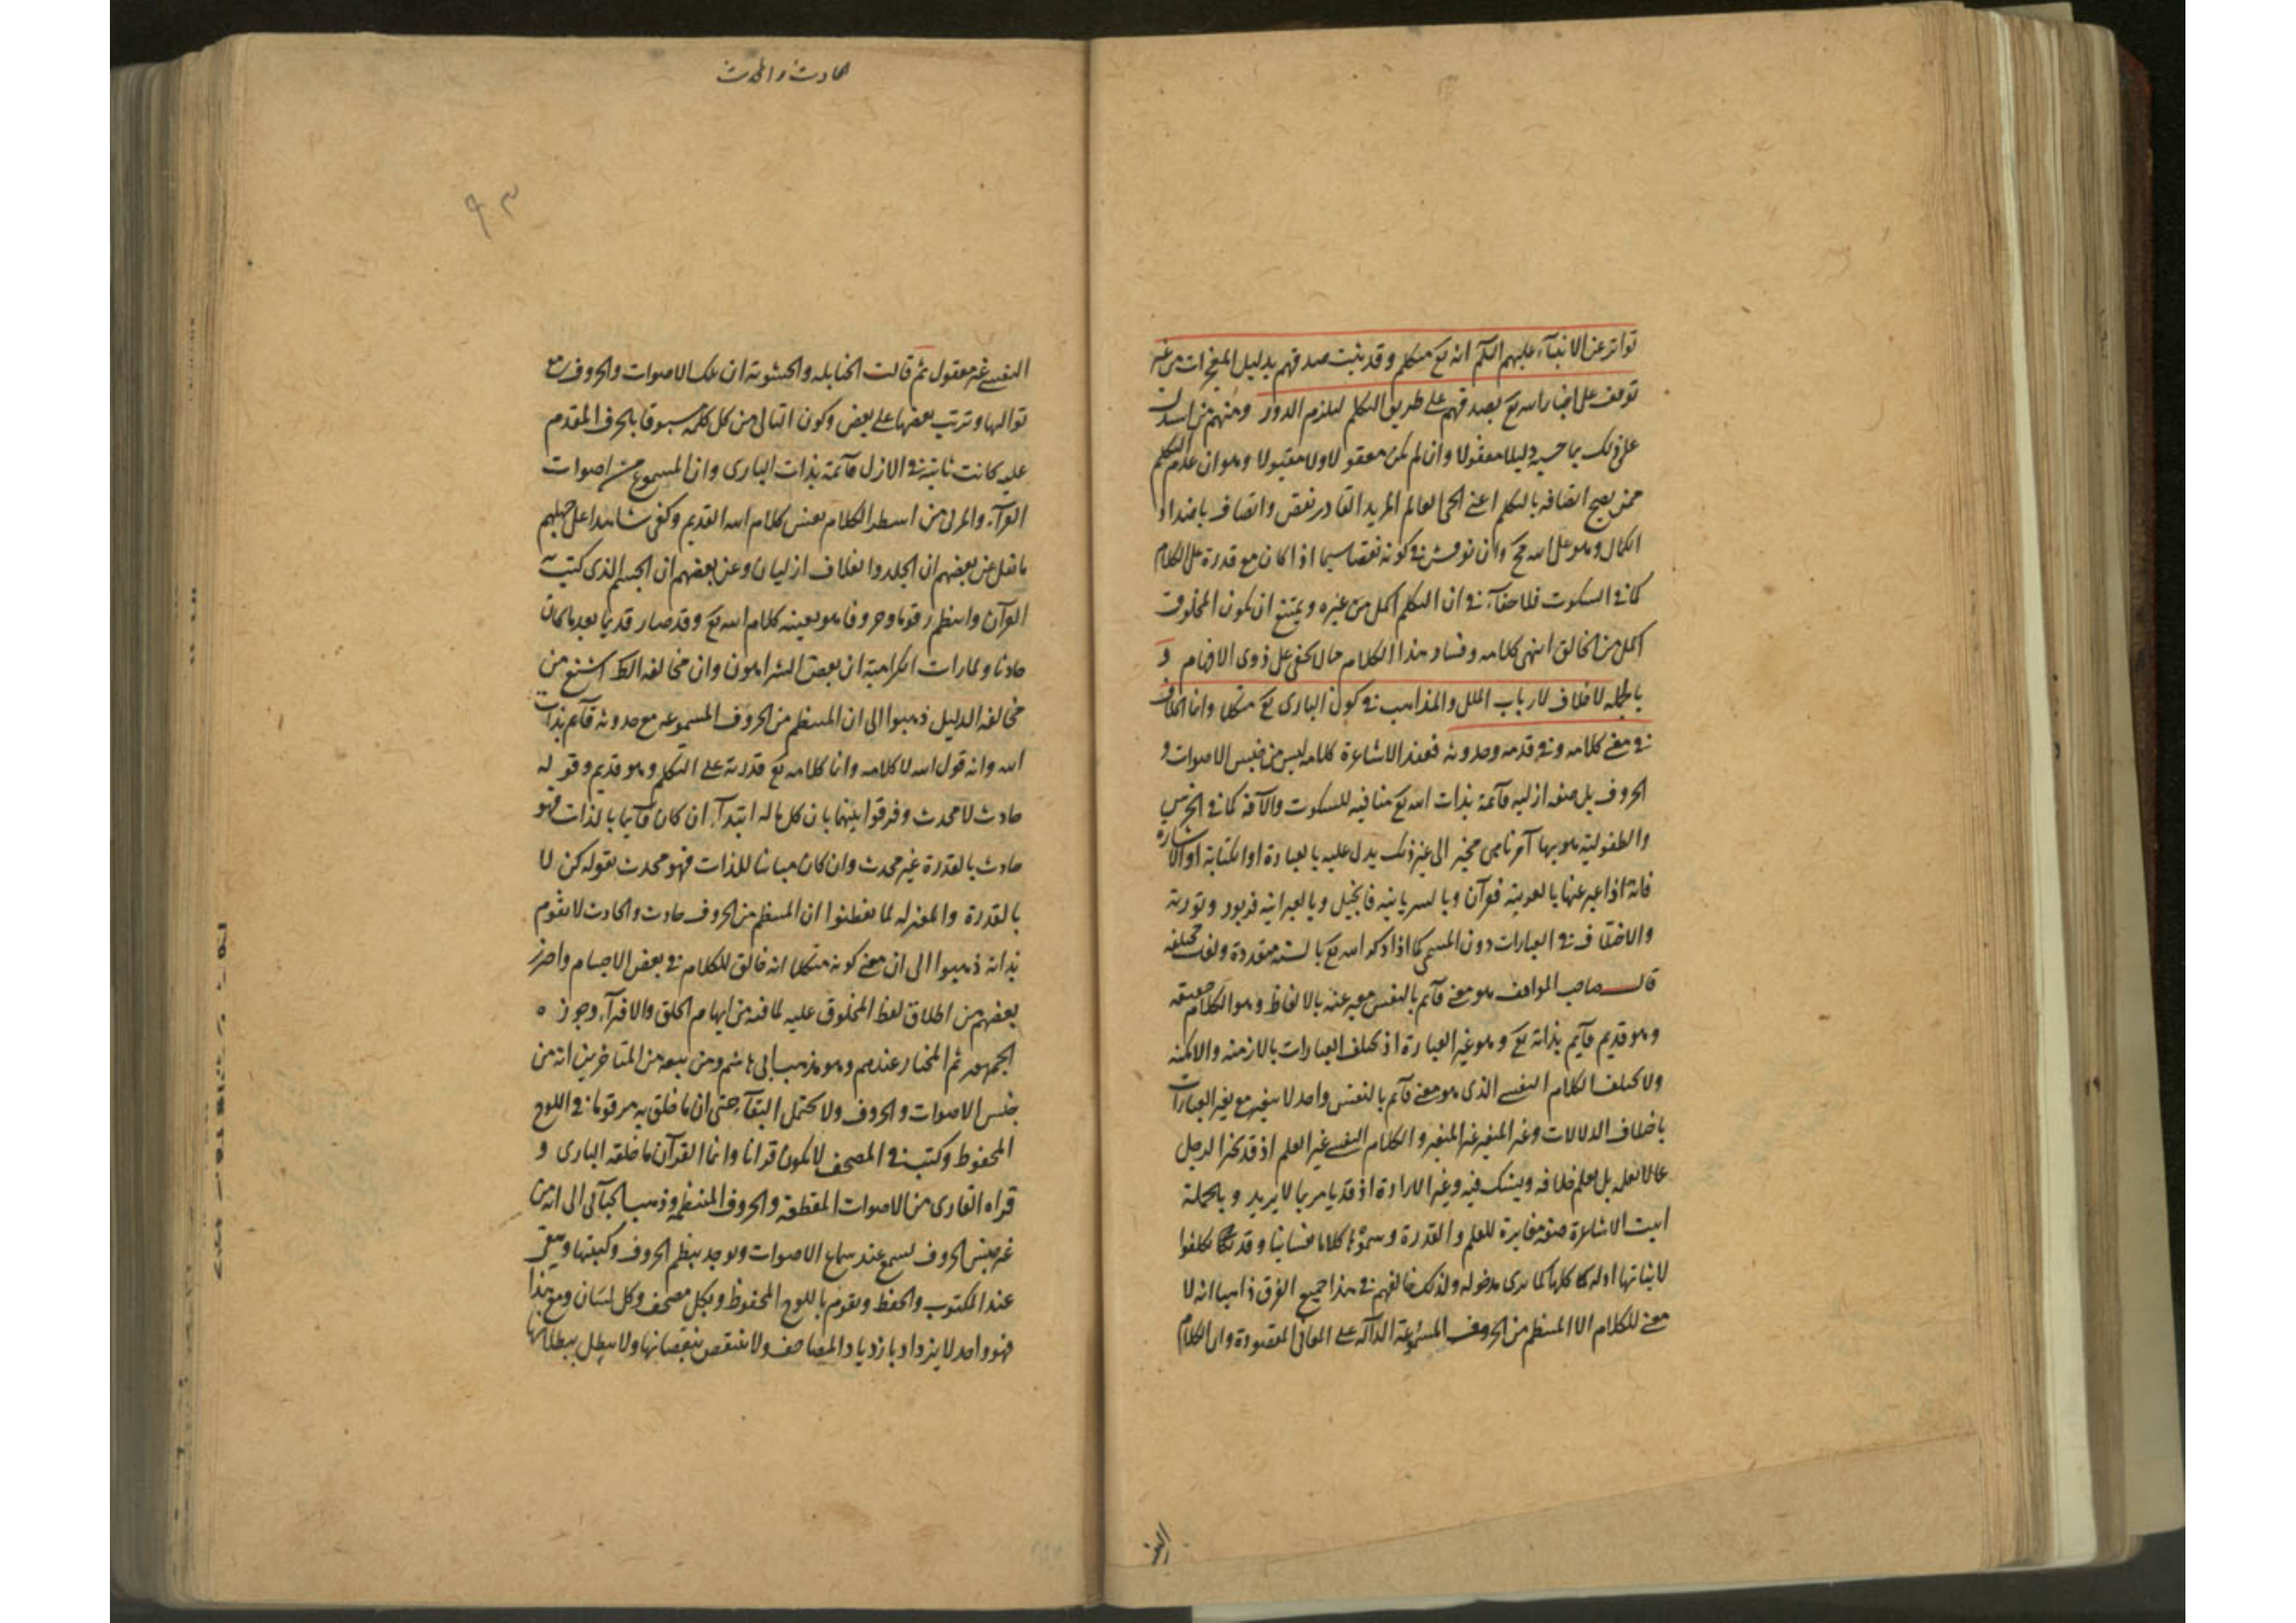 تواتر عن الانبيآء عليهم السلم انه تع متكلم وقد ثبت صدقهم بدليل المعجزات من غير
توقف على اخبار اسه تع بصدقهم على طريق التكلم ليلزم الدور ومنهم من استدل
على ذلك بما حسبه دليلا معقولا وان لم يكن معقولا ولا مقبولا وهو ان عدم التكلم
ممن يصح اتصافه بالتكلم اعنى الحى العالم المريد القادر نقص واتصاف باضداد
الكمال وهو على اسه مح وان نوقش فى كونه نقصا سيما اذا كان مع قدرة على الكلام
كما فى السكوت فلا خفآء فى ان المتكلم اكمل من غيره ويمتنع ان يكون المخلوق
اكمل من الخالق انتهى كلامه وفساد هذا الكلام مما لا يخفى على ذوى الافهام و
بالجمله لا خلاف لارباب الملل والمذاهب فى كون البارى تع متكلما وانما الخلاف
فى معنى كلامه وفى قدمه وحدوثه فعند الاشاعرة كلامه ليس من جنس الاصوات و
الحروف بل صفه ازليه قآئمة بذات اسه تع منافيه للسكوت والآفة كما فى الخرس
والطفولية هو بها آمر ناهى مخبر الى غير ذلك يدل عليه بالعبارة او الكتابة او الاشاره
فانه اذا عبر عنها بالعربية فقرآن وبالسريانيه فانجيل وبالعبرانيه فزبور وتورية
والاختلاف فى العبارات دون المسمى كما اذا ذكر اسه تع بالسنه متعددة ولغات مختلفه
قال صاحب المواقف هو معنى قآئم بالنفس معبر عنه بالالفاظ وهو الكلام حقيقه
وهو قديم قآئم بذاته تع وهو غير العبارة اذ تختلف العبارات بالازمنه والامكنه
ولا يختلف الكلام النفسى الذى هو معنى قآئم بالنفس واحد لا يتغير مع تغير العبارات
باختلاف الدلالات وغير المتغير غير المتغير والكلام النفسى غير العلم اذ قد يخبر الرجل
عما لا يعلمه بل يعلم خلافه ويشك فيه وغير الارادة اذ قد يامر بما لا يريد وبالجملة
اثبت الاشاعرة صفه مغايرة للعلم والقدرة وسموها كلاما نفسانيا وقد تكلفوا
لاثباتها ادله كلها كما ترى مدخوله ولذلك خالفهم فى هذا جميع الفرق ذاهبا انه لا
معنى للكلام الا المنتظم من الحروف المسموعة الدآلة على المعانى المقصودة وان الكلام
النفـ
الحادث والمحدث
٩٣
النفسى غير معقول ثم قالت الحنابله والحشوية ان تلك الاصوات والحروف مع
تواليها وترتب بعضها على بعض وكون التالى من كل كلمه مسبوقا بالحرف المقدم
عليه كانت ثابتة فى الازل قآئمة بذات البارى وان المسموع من اصوات
القرآء والمرئى من اسطر الكلام نفس كلام اسه القديم وكفى شاهدا على جهلهم
ما نقل عن بعضهم ان الجلد والغلاف ازليان وعن بعضهم ان الجسم الذى كتب به
القرآن وانتظم رقوما وحروفا هو بعينه كلام اسه تع وقد صار قديما بعد ما كان
حادثا ولما رات الكرامية ان بعض الشر اهون وان مخالفه الضر اشنع من
مخالفه الدليل ذهبوا الى ان المنتظم من الحروف المسموعه مع حدوثه قآئم بذات
اسه وانه قول اسه لا كلامه وانما كلامه تع قدرته على التكلم وهو قديم وقوله
حادث لا محدث وفرقوا بينهما بان كل ما له ابتدآء ان كان قآئما بالذات فهو
حادث بالقدرة غير محدث وان كان مباينا للذات فهو محدث بقوله كن لا
بالقدرة والمعتزله لما تفطنوا ان المنتظم من الحروف حادث والحادث لا يقوم
بذاته ذهبوا الى ان معنى كونه متكلما انه خالق للكلام فى بعض الاجسام واحترز
بعضهم من اطلاق لفظ المخلوق عليه لما فيه من ايهام الخلق والافترآء وجوزه
الجمهور ثم المختار عندهم وهو مذهب ابى هاشم ومن تبعه من المتاخرين انه من
جنس الاصوات والحروف ولا يحتمل البقآء حتى ان ما خلق به مرقوما فى اللوح
المحفوظ وكتب فى المصحف لا يكون قرانا وانما القرآن ما خلقه البارى و
قراه القارى من الاصوات المقطعة والحروف المنتظمه وذهب الجبآئى الى انه من
غير جنس الحروف يسمع عند سماع الاصوات ويوجد بنظم الحروف وكتبتها ويبقى
عند المكتوب والحفظ ويقوم باللوح المحفوظ وبكل مصحف وكل لسان ومع هذا
فهو واحد لا يزداد بازدياد المصاحف ولا ينتقص بنقصانها ولا يبطل ببطلانها